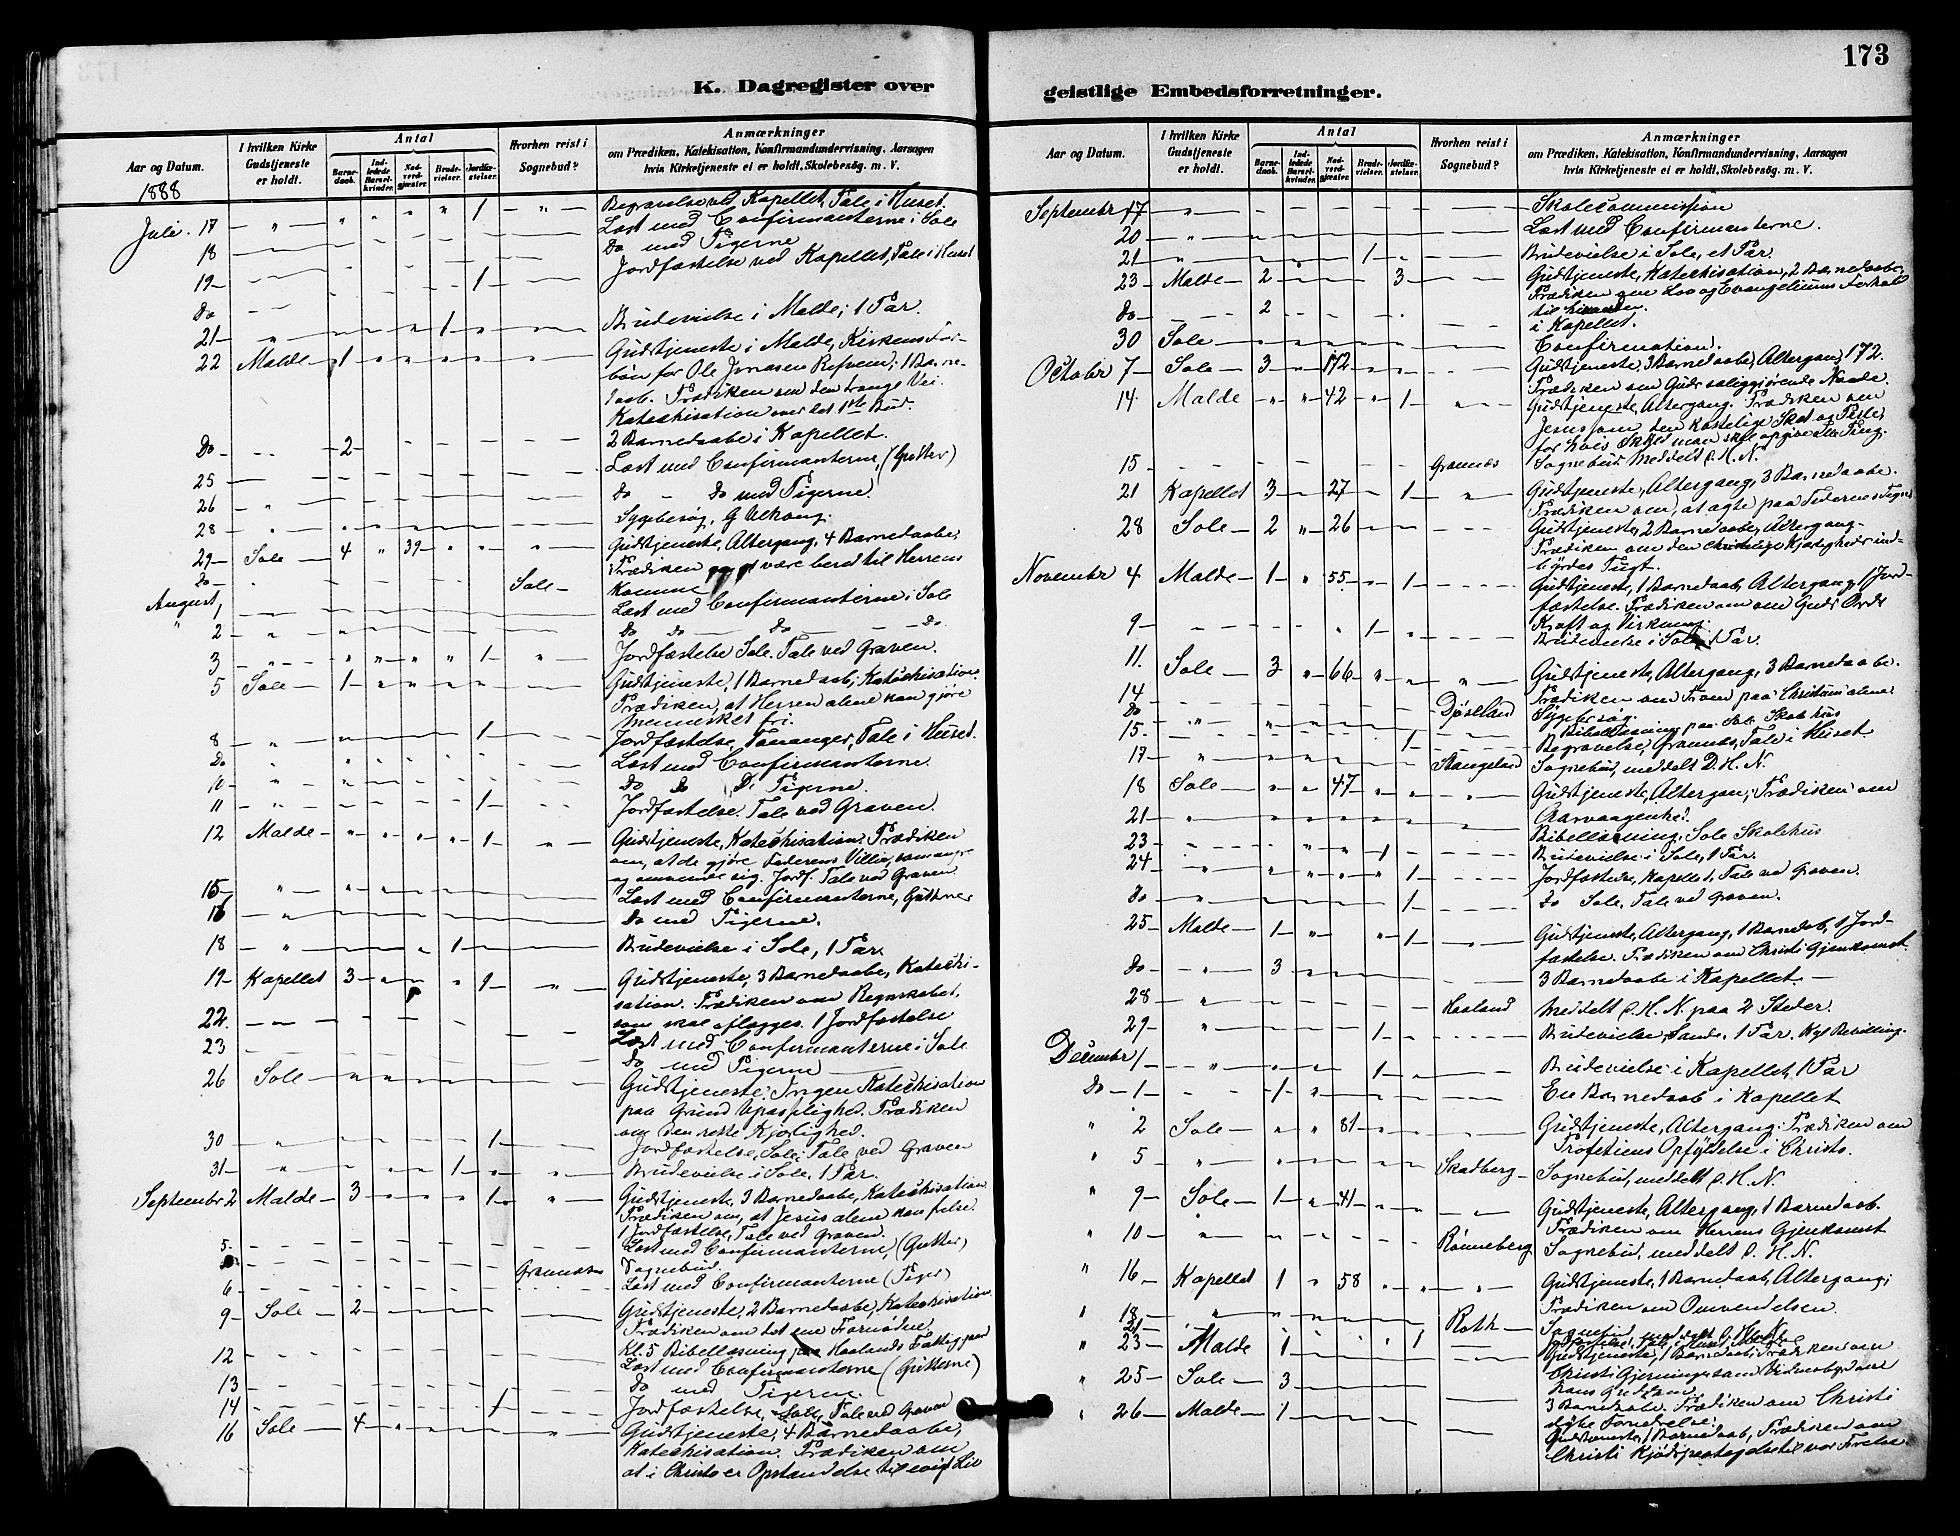 173
K. Dagregister over
geistlige Embedsforretninger.
Aar og Datum.
I hvilken Kirke Gudstjeneste er holdt.
Antal
Barnedaab.
Indledede Barselkvinder.
Nadverdgjæster.
Brudevielser.
Jordfæstelser.
Hvorhen reist i Sognebud?
Anmærkninger
om Prædiken, Katekisation, Konfirmandundervisning, Aarsagen
hvis Kirketjeneste ei er holdt, Skolebesøg. m. V.
1888
Juli 17 1 Begravelse ved Kapellet, Tale i Huset.
Læst med Confirmanterne i Sole
18 Do med Pigerne
19 1 Jordfæstelse ved Kapellet, Tale i Huset
Do
21 1 Brudevielse i Malde, 1 Par.
22 Malde 1 Gudstjeneste i Malde, Kirkens For-
bøn for Ole Jonasen Refvem; 1 Barne-
daab. Prædiken om den trange Vei.
Katechisation over det 1ste Bud.
Do 2 2 Barnedaabe i Kapellet.
25 Læst med Confirmanterne, (Gutter)
26 Do Do med Pigerne
28 Sygebesøg, G.
29 Sole 4 39 Gudstjeneste, Altergang, 4 Barnedaabe,
Prædiken være bered til Herrens
Do Sole Komme
August 1 Læst med Confirmanterne i Sole
2 Do Do Do Do
3 1 Jordfæstelse Sole. Tale ved Graven.
5 Sole 1 Gudstjeneste, 1 Barnedaab, Katechisation.
Prædiken, at Herren alene kan gjøre
Mennesket fri.
8 1 Jordfæstelse Tananger, Tale i Huset.
Do Læst med Confirmanterne.
10 Do Do Do Pigerne.
11 1 Jordfæstelse. Tale ved Graven.
12 Malde 1 Gudstjeneste, Katechisation. Prædiken
om, at de gjøre Faderens Villie, som angre
og omvende sig. Jordf. Tale ved Graven
15 Læst med Confirmanterne, Gutterne
16 Do med Pigerne.
18 1 Brudevielse i Sole, 1 Par
19 Kapellet 3 1 Gudstjeneste, 3 Barnedaabe, Katechi-
sation. Prædiken om Regnskabet,
som skal aflægges. 1 Jordfæstelse
22 Læst med Confirmanterne i Sole
23 Do med Pigerne
26 Sole Gudstjeneste. Ingen Katechisation
paa Grund Upasselighed. Prædiken
om den rette Kjærlighed.
30 1 Jordfæstelse, Sole. Tale ved Graven
31 1 Brudevielse i Sole, 1 Par.
September 2 Malde 3 1 Gudstjeneste, 3 Barnedaabe, Katechisation
Prædiken om, at Jesus alene kan frelse.
1 Jordfæstelse, Tale ved Graven.
5 Læst med Confirmanterne, (Gutter)
Grannæs Sognebud.
6 Læst med Confirmanterne (Piger)
9 Sole 2 Gudstjeneste, 2 Barnedaabe, Katechisation
Prædiken om det ene Fornødne.
Kl. 5 Bibellæsning paa Haalands Fattiggaard
12 Læst med Confirmanterne (Gutterne)
13 Do med Pigerne.
14 1 Jordfæstelse, Sole, Tale ved Graven
16 Sole 4 Gudstjeneste, 4 Barnedaabe,
Katechisation. Prædiken om
at i Christo er Opstandelse til evigt Liv
Aar og Datum.
I hvilken Kirke Gudstjeneste er holdt.
Antal
Barnedaab.
Indledede Barselkvinder.
Nadverdgjæster.
Brudevielser.
Jordfæstelser.
Hvorhen reist i Sognebud?
Anmærkninger
om Prædiken, Katekisation, Konfirmandundervisning, Aarsagen
hvis Kirketjeneste ei er holdt, Skolebesøg. m. V.
September 17 Skolecommission
20 Læst med Confirmanterne.
21 1 Brudevielse i Sole, et Par.
23 Malde 2 3 Gudstjeneste, Katechisation, 2 Barnedaabe,
Prædiken om Lov og Evangeliums Forhold
til hinanden.
Do 2 i Kapellet.
30 Sole Confirmation.
October 7 Sole 3 172 Gudstjeneste, 3 Barnedaabe, Altergang, 172.
Prædiken om Guds saliggjørende Naade.
14 Malde 42 1 Gudstjeneste, Altergang. Prædiken om
Jesus som den kostelige Skat og Perle,
for hvis Skyld man skal opgive alle Ting.
15 Grannæs Sognebud. Meddelt d. H. N.
21 Kapellet 3 27 1 Gudstjeneste, Altergang, 3 Barnedaabe.
Prædiken om, at agte paa Tidernes Tegn
28 Sole 2 26 Gudstjeneste, 2 Barnedaabe, Altergang.
Prædiken om den christelige Kjærligheds ind-
byrdes Tugt.
November 4 Malde 1 55 1 Gudstjeneste, 1 Barnedaab, Altergang, 1 Jord-
fæstelse. Prædiken om om Guds Ords
Kraft og Virkning.
9 1 Brudevielse i Sole, 1 Par.
11. Sole 3 66 Gudstjeneste, Altergang, 3 Barnedaabe.
Prædiken om Troen paa Christum alene
14 Djøseland Sygebesøg.
Do Bibellæsning paa Skolehus
15. 1 Begravelse, Grannæs, Tale i Huset
17 Stangeland Sognebud, meddelt D. H. N.
18 Sole 47 Gudstjeneste, Altergang; Prædiken om
Aarvaagenhed.
21 Bibellæsning, Sole Skolehus
23 1 Brudevielse i Sole, 1 Par.
24 1 Jordfæstelse, Kapellet, Tale ved Graven.
Do 1 Do Sole. Tale ved Graven.
25 Malde 1 1 Gudstjeneste, Altergang, 1 Barnedaab, 1 Jord-
fæstelse. Prædiken om Christi Gjenkomst
Do 3 3 Barnedaabe i Kapellet.
28 Haaland Meddelt d. H. N. paa 2 Steder.
29 1 Brudevielse, Sande, 1 Par. Kgl Bevilling.
December 1 1 Brudevielse i Kapellet, 1 Par
Do 1 1 En Barnedaab i Kapellet
" 2 Sole 81 Gudstjeneste, Altergang. Prædiken om
Profetiens Opfyldelse i Christo.
" 5 Skadberg Sognebud, meddelt d. H. N.
" 9 Sole 1 41 Gudstjeneste, Altergang, 1 Barnedaab.
Prædiken om Herrens Gjenkomst
" 10 Rønneberg Sognebud, meddelt d. H. N.
" 16 Kapellet 1 58 Gudstjeneste, 1 Barnedaab, Altergang;
Prædiken om Omvendelsen.
" 18 Roth Sognebud, meddelt d. H. N.
21 1
" 23 Malde 1 Gudstjeneste, 1 Barnedaab, Prædiken om
Christi Gjerninger som Vidnesbyrd om
hans Guddom.
" 25 Sole 3 3 Barnedaabe. Prædiken om Christi
dybe Fornedrelse.
" 26 Malde 1 Gudstjeneste, 1 Barnedaab, Prædiken om
Christi Kjødspaatagelse til vor Frelse.